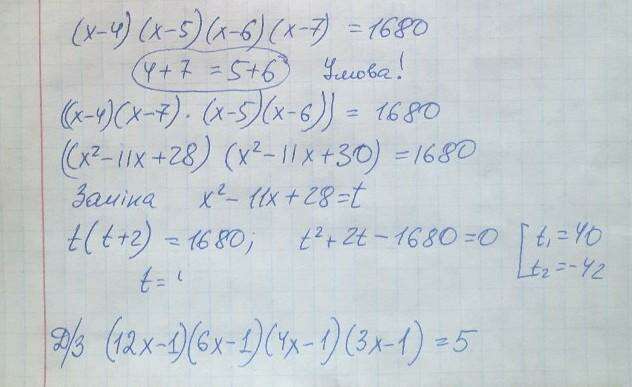 (x-4)(x-5)(x-6)(x-7) = 1680
4+7 = 5+6 Умова!
((x-4)(x-7)·(x-5)(x-6)) = 1680
(x²-11x+28)(x²-11x+30) = 1680
Заміна x²-11x+28=t
t(t+2) = 1680; t²+2t-1680=0 [t₁=40
t₂=-42
t=
Д/З (12x-1)(6x-1)(4x-1)(3x-1) = 5